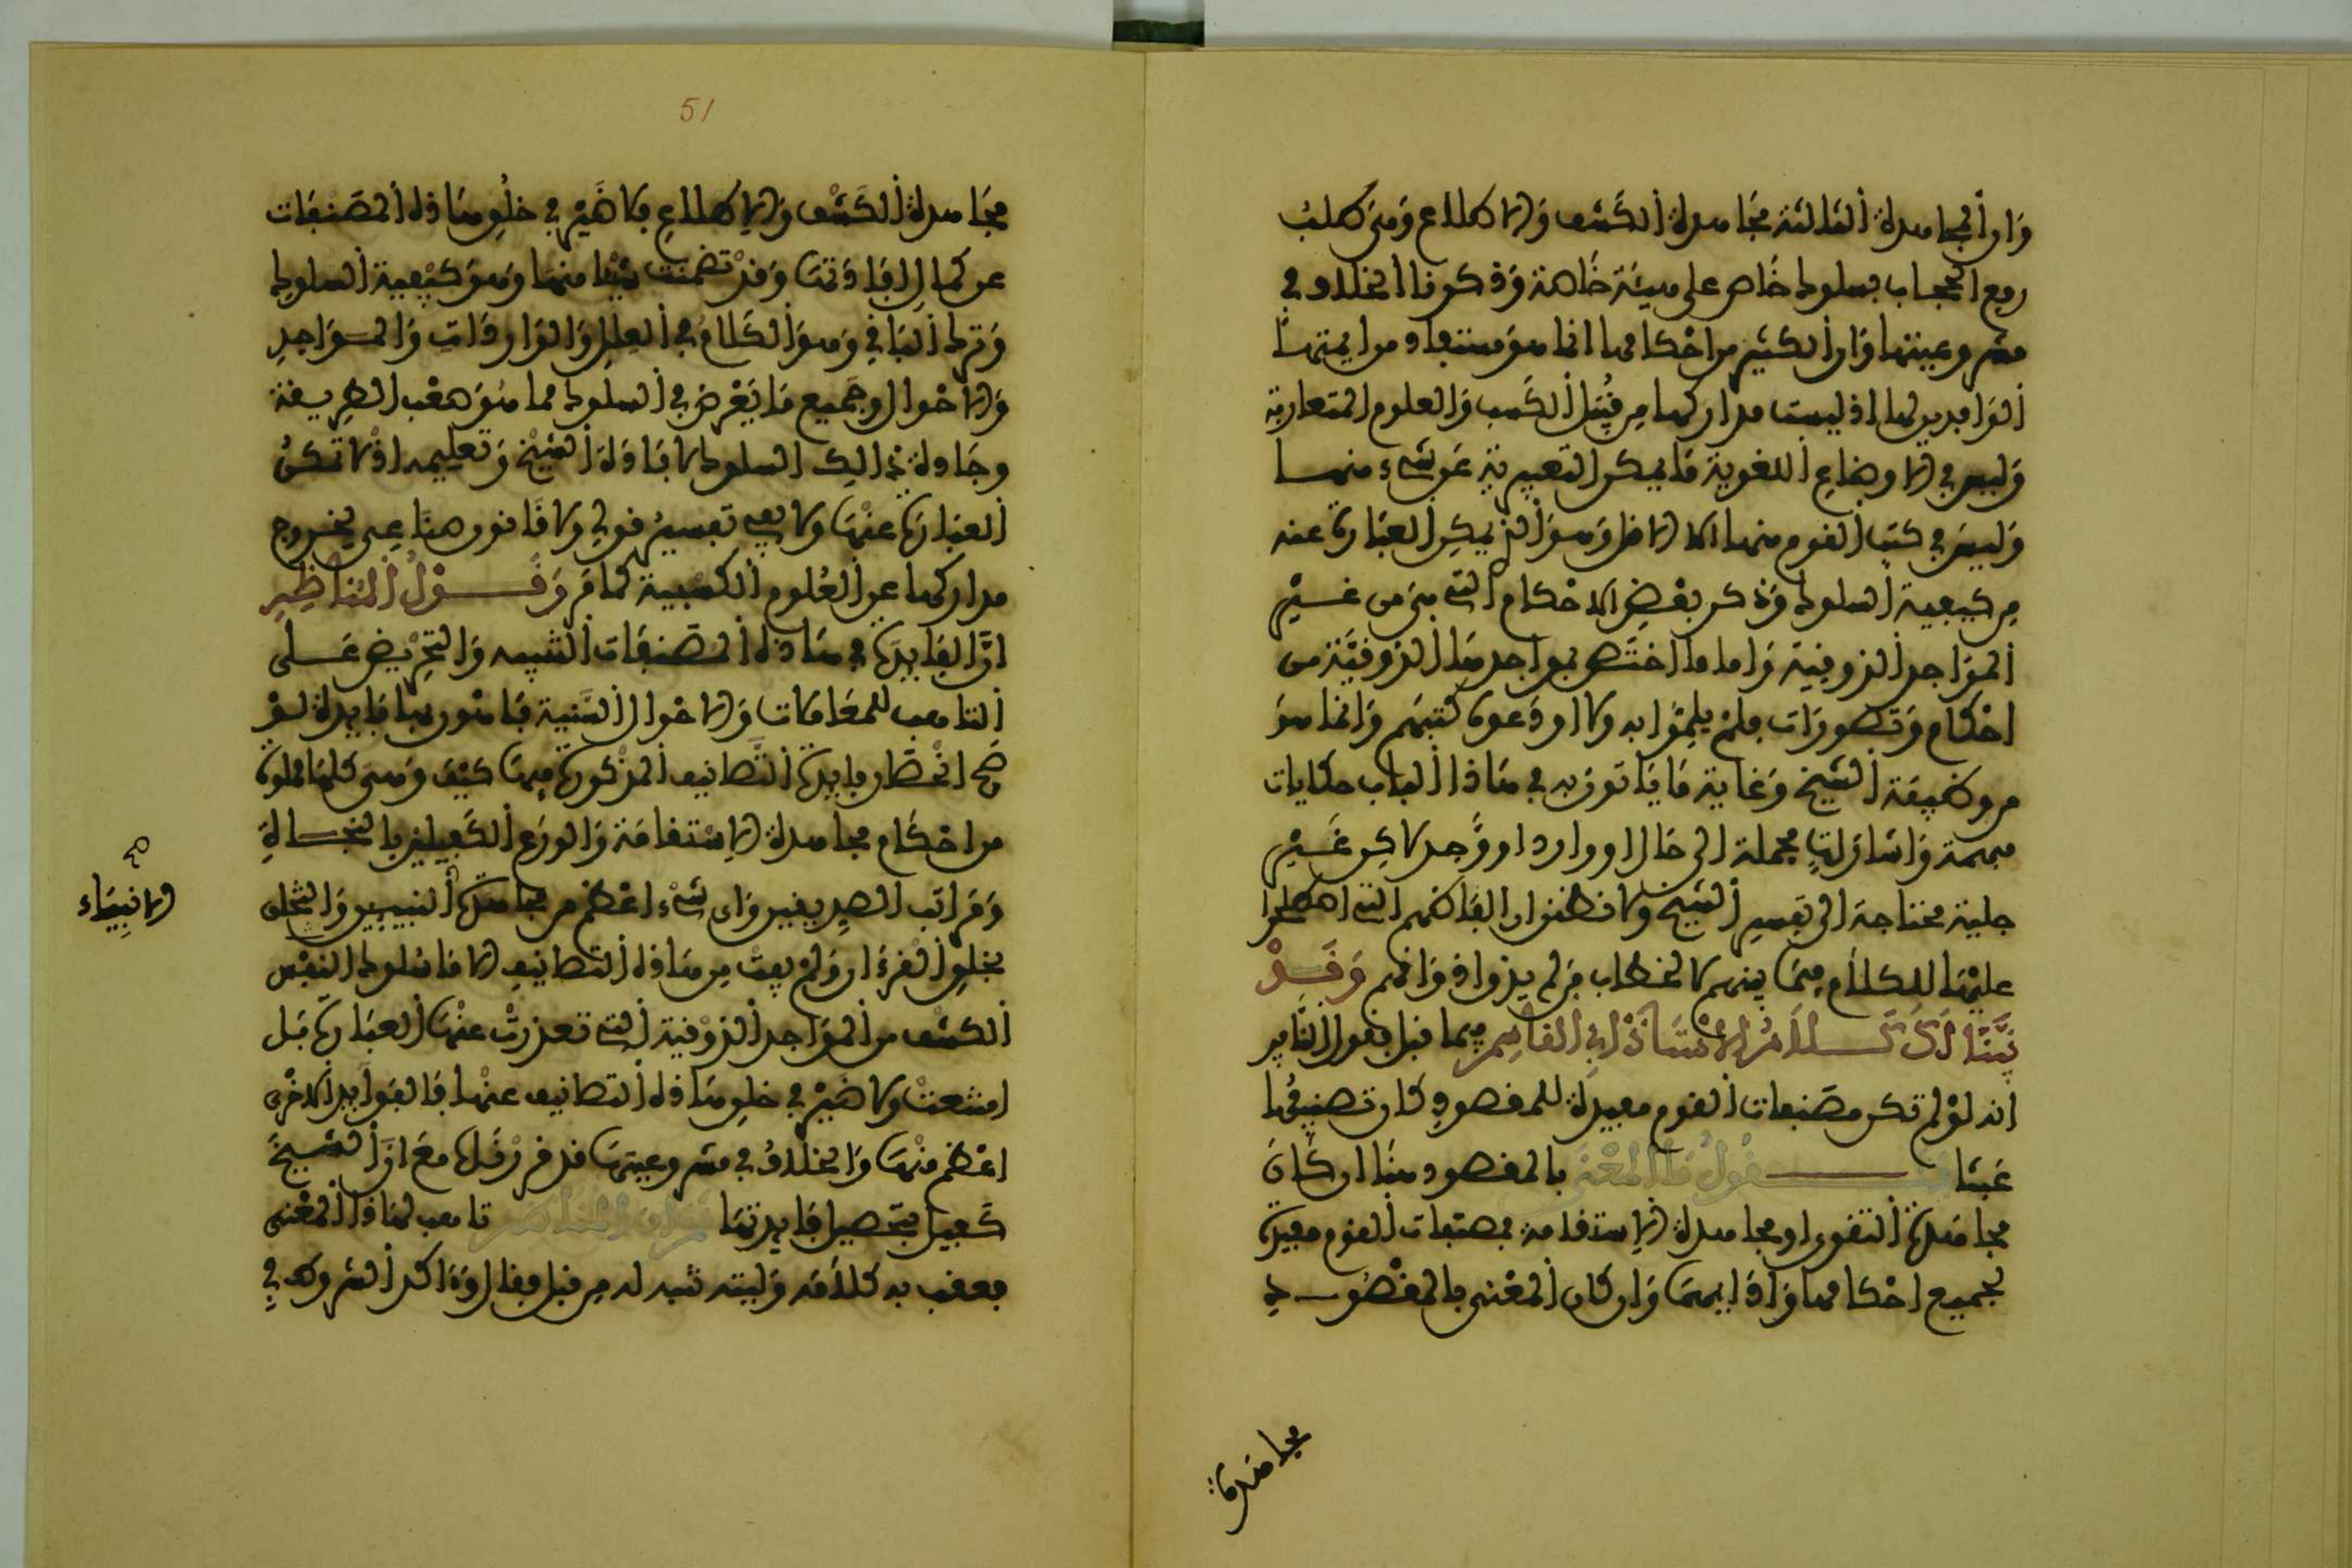 وان المجاهدة الثالثة مجاهدة الكشف والاطلاع وهي طلب
رفع الحجاب بسلوك خاص على هيئة خاصة وذكرنا الخلاف في
مشروعيتها وان الكثير من احكامها انما هو مستفاد من ايمتها
الواجدين لها اذ ليست مداركها من قبيل الكسب والعلوم المتعارفة
وليس في الاوضاع اللغوية ما يمكن التعبير به عن شيء منها
وليس في كتب القوم منها الا الاقل وهو الذي يمكن العبارة عنه
من كيفية السلوك وذكر بعض الاحكام التي هي من غير
المواجد الذوقية واما ما اختص بمواجدها الذوقية من
احكام وتصورات فلم يلموا به ولا اودعوه كتبهم وانما هو
من وظيفة الشيخ وغاية ما ياتون به في هاذا الباب حكايات
مبهمة واشارات مجملة الى حال او وارد او وجد لاكن غير
جلية محتاجة الى تفسير الشيخ ولا تظنوا ان الفاظهم التي اصطلحوا
عليها للكلام فيما بينهم كالخطاب من لم يذق اذواقهم وقد
بينا ذلك كلام الاستاذ ابي القاسم فيما قبل فقول القاير
انه لو لم تكن مصنفات القوم مفيدة للمقصود كان تصنيفها
عبثا فنقول ما المعنى بالمقصود هنا ان كان
مجاهدة التقوى او مجاهدة الاستقامة فمصنفات القوم مفيدة
لجميع احكامها وادابها وان كان المعنى بالمقصود
مجاهدة
51
مجاهدة الكشف والاطلاع فلا ضير في خلو هاذه المصنفات
عن كمال افادتها وقد تضمنت شيئا منها وهو كيفية السلوك
وترك الباقي وهو الكلام في العلل والواردات والمواجد
والاحوال وجميع ما يعرض في السلوك مما هو صعب الطريقة
وجادة ذالك السلوك لافادة الشيخ وتعليمه اذ لا تكن
العبارة عنها ولا يفي تفسير قولي ولا قانون صناعي لخروج
مداركها عن العلوم الكسبية كما مر وقول المناظر
ان الفايدة في هاذه المصنفات التنبيه والتحريض على
التاهب للمقامات والاحوال السنية فاهون بها فايدة لو
صح انحصار فايدة التصانيف المذكورة فيها كيف وهي كلها مملوة
من احكام مجاهدة الاستقامة والورع الكفيلين بالنجاة
ومراتب الصديقين واي شيء اعظم من مجاهدة النبيين والتخلق
بخلق القرءان ولم يفت من هاذه التصانيف الا ما سلوك النفس
الكشف من المواجد الذوقية التي تعذرت عنها العبارة بل
امتنعت ولا ضير في خلو هاذه التصانيف عنها فالفوايد الاخرى
اعظم منها والخلاف في مشروعيتها قد قررناه مع ان الشيخ
كفيل بتحصيل فايدتها ثم ان المناظر تاهب لهاذا المعنى
فعقب به كلامه وليته تنبه له من قبل فقال وءاكد الشروط في
صح
الانبياء